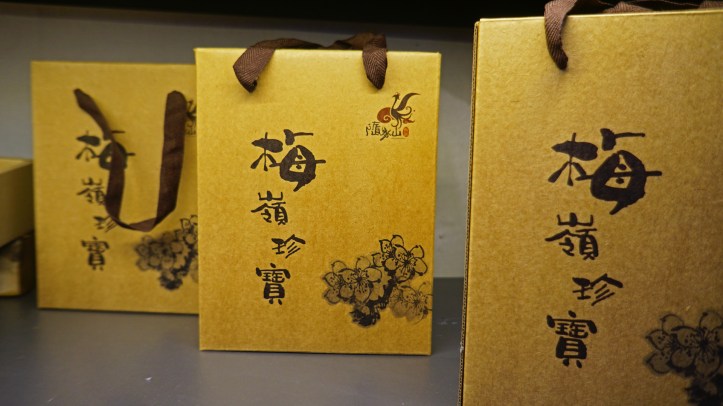 梅嶺珍寶
梅嶺珍寶
梅嶺珍寶